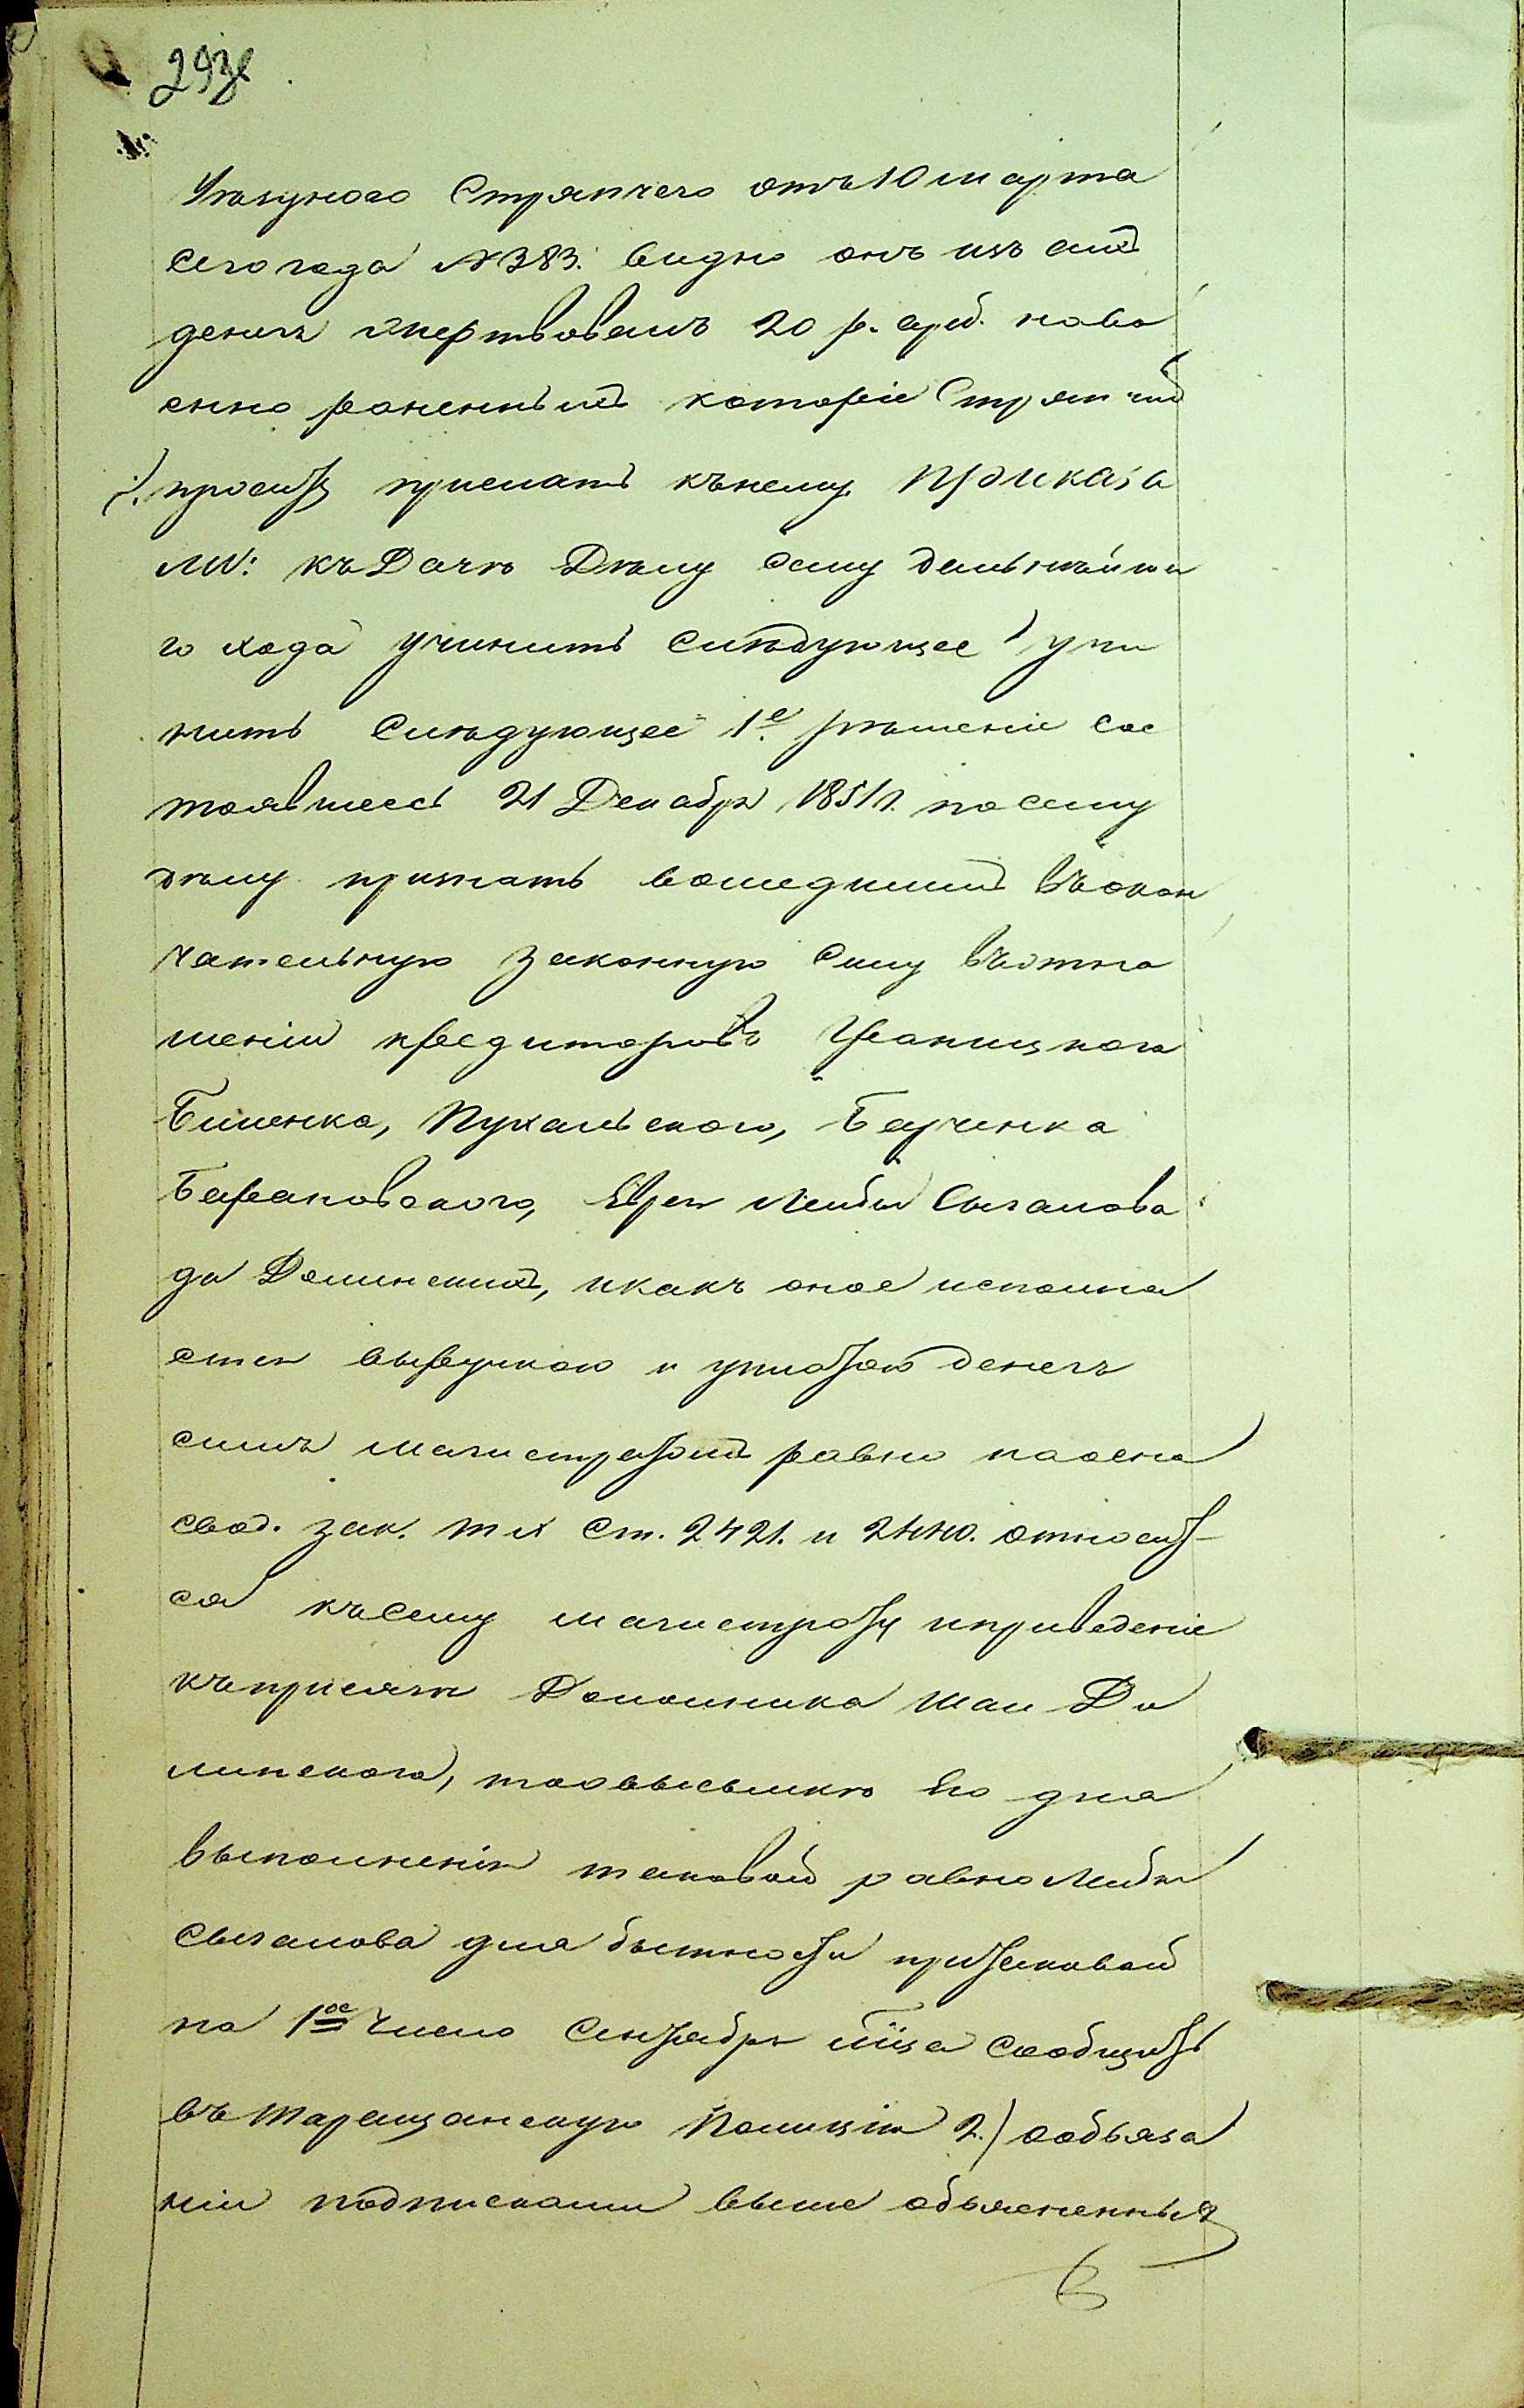 293
Уѣзднаго Стряпчего отъ 10 марта
сего года №383. видно онъ изъ сихъ
денегъ жертвовалъ 20 р. сереб. на во
енно раненныхъ которіе Стряпчій
проситъ прислать къ нему Приказа
ли: къ Дачѣ Дѣлу сему дальнѣйша
го хода учинить слѣдующее учи
нить слѣдующее 1е. рѣшеніе сос
тоявшееся 21 Декабря 1851г. по сему
дѣлу признать вошедшимъ въ окон
чательную законную силу въ отно
шеніи кредиторовъ Ураницкого
Биленка, Пухальского, Барченка
Барановского, Еврея Лейбы Сыгалова
да Долинскихъ, и какъ оное исполня
ется выручкою и уплатою денегъ
симъ магистратомъ равно на осно
свод. зак. т. Х ст. 2421. и 2440. относит-
ся къ сему магистрату и приведеніе
къ присягѣ Должника Шаи До
линского, то о высылкѣ Его для
выполненія таковой равно Лейбы
Сыгалова для бытности при таковой
на 1ое число Сентября м͠ца сообщить
въ Таращанскую Полицію 2.) о обяза
ніи подписками выше объясненныхъ